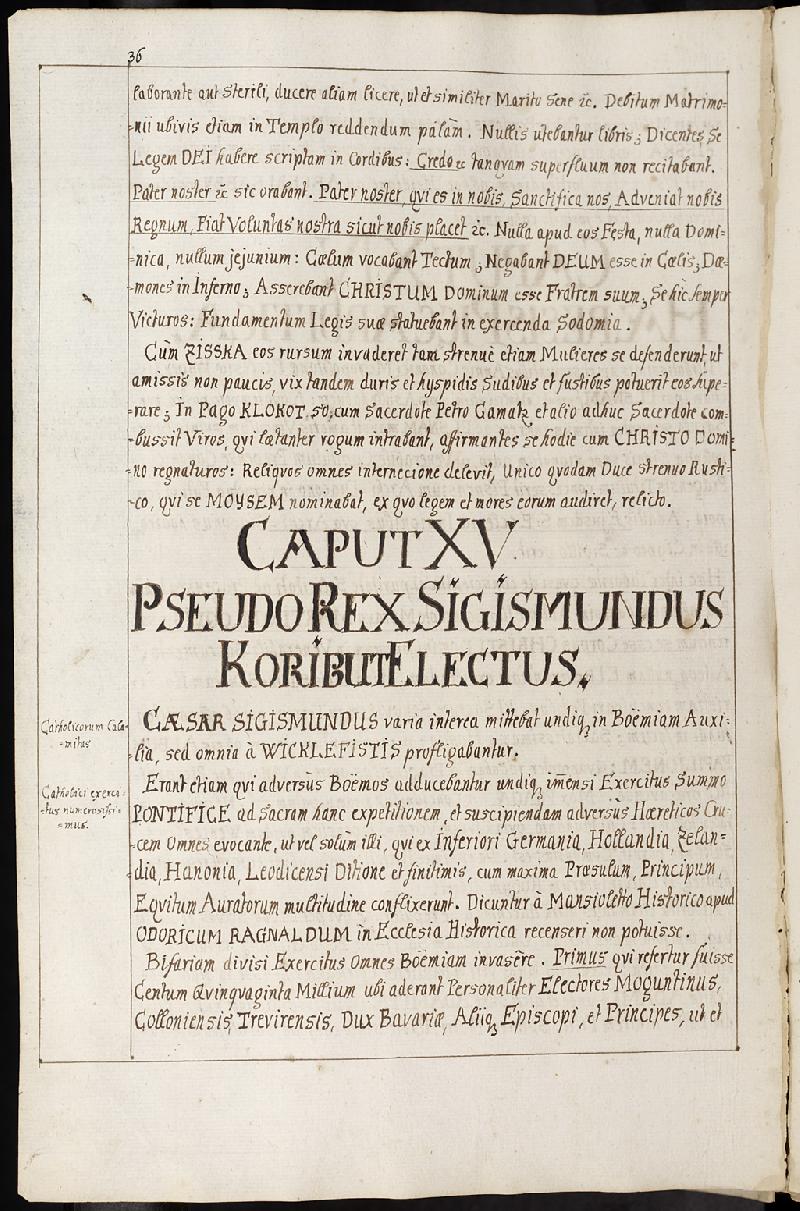 36
laborante aut sterili, ducere aliam licere, ut et similiter Marito Sene &c. Debitum Matrimo=
=nii ubivis etiam in Templo reddendum palàm. Nullis utebantur libris; Dicentes Se
Legem DEI habere scriptam in Cordibus: Credo &c tanqvam superfluum non recitabant.
Pater noster &c sic orabant. Pater noster, qvi es in nobis, Sanctifica nos, Adveniat nobis
Regnum, Fiat Voluntas nostra sicut nobis placet &c. Nulla apud eos Festa, nulla Domi=
=nica, nullum jejunium: Cœlum vocabant Tectum; Negabant DEUM esse in Cœlis; Dæ=
=mones in Inferno; Asserebant CHRISTUM Dominum esse Fratrem suum; Se hic semper
Victuros: Fundamentum Legis suæ statuebant in exercenda Sodomia.
Cùm ZISSKA eos rursum invaderet tam strenuè etiam Mulieres se defenderunt, ut
amissis non paucis, vix tandem duris et hyspidis Sudibus et fustibus potuerit eos supe=
=rare; In Pago KLOKOT 50, cum Sacerdote Petro Gamatz et alio adhuc Sacerdote com=
=bussit Viros, qvi lætanter rogum intrabant, affirmantes se hodie cum CHRISTO Domi=
=no regnaturos: Reliqvos omnes internecione delevit, Unico qvodam Duce strenuo Rusti=
=co, qvi se MOYSEM nominabat, ex qvo legem et mores eorum audiret, relicto.
CAPUT XV
PSEUDO REX SIGISMUNDUS
KORIBUT ELECTUS.
Catholicorum Cala=
=mitas
CÆSAR SIGISMUNDUS varia interea mittebat undiq; in Boëmiam Auxi=
=lia, sed omnia à WICKLEFISTIS profligabantur.
Catholici exerci=
=tus numerosissi=
=mus.
Erant etiam qvi adversùs Boëmos adducebantur undiq; im̄ensi Exercitus Summo
PONTIFICE ad Sacram hanc expetitionem, et suscipiendam adversùs Hæreticos Cru=
=cem Omnes evocante, ut vel solùm illi, qvi ex Inferiori Germania, Hollandia, Zelan=
dia, Hanonia, Leodicensi Ditione et finitimis, cum maxima Præsulum, Principum,
Eqvitum Auratorum multitudine conflixerunt. Dicuntur à Mansioletto Historico apud
ODORICUM RAGNALDUM in Ecclesia Historica recenseri non potuisse.
Bifariam divisi Exercitus Omnes Boëmiam invasêre. Primus qvi refertur fuisse
Centum Qvinqvaginta Millium ubi aderant Personaliter Electores Moguntinus,
Colloniensis, Trevirensis, Dux Bavariæ, Aliiq; Episcopi, et Principes, ut et